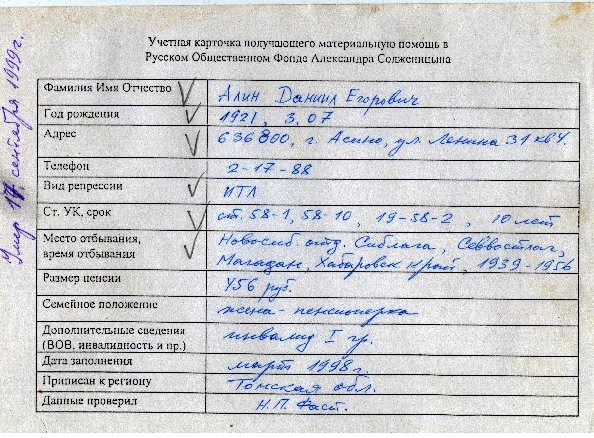 Умер 17 сентября 1999 г.
Учетная карточка получающего материальную помощь в
Русском Общественном Фонде Александра Солженицына
Фамилия Имя Отчество Алин Даниил Егорович
Год рождения 1921, 3.07
Адрес 636800, г. Асино, ул. Ленина 31 кв 4.
Телефон 2-17-88
Вид репрессии ИТЛ
Ст. УК, срок ст. 58-1, 58-10, 19-58-2, 10 лет
Место отбывания, Новосиб отд. Сиблага, Севвостлаг,
время отбывания Магадан, Хабаровск край, 1939-1956
Размер пенсии 456 руб.
Семейное положение жена - пенсионерка
Дополнительные сведения
(ВОВ, инвалидность и пр.) инвалид I гр.
Дата заполнения март 1998 г.
Приписан к региону Томская обл.
Данные проверил Н.П. Фаст.